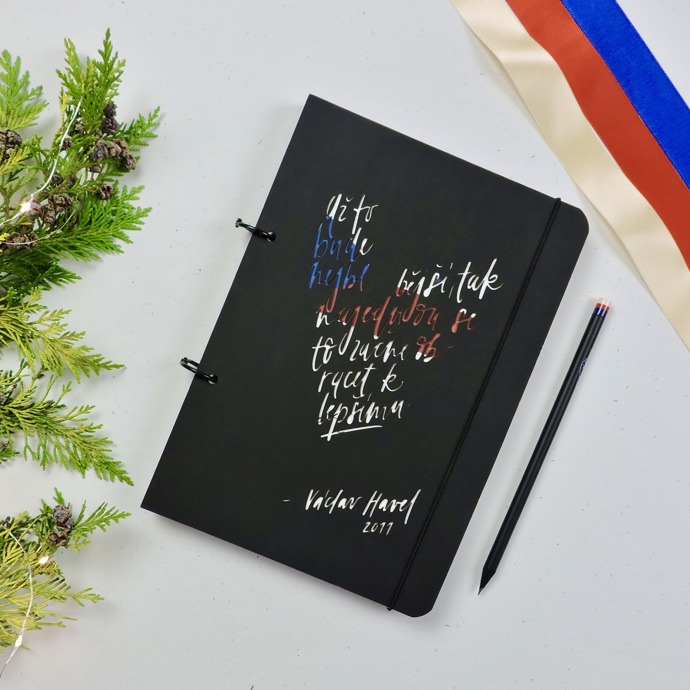 až to
bude
nejbl bější, tak
najednou se
to začne ob-
racet k
lepšímu
- Václav Havel
2011